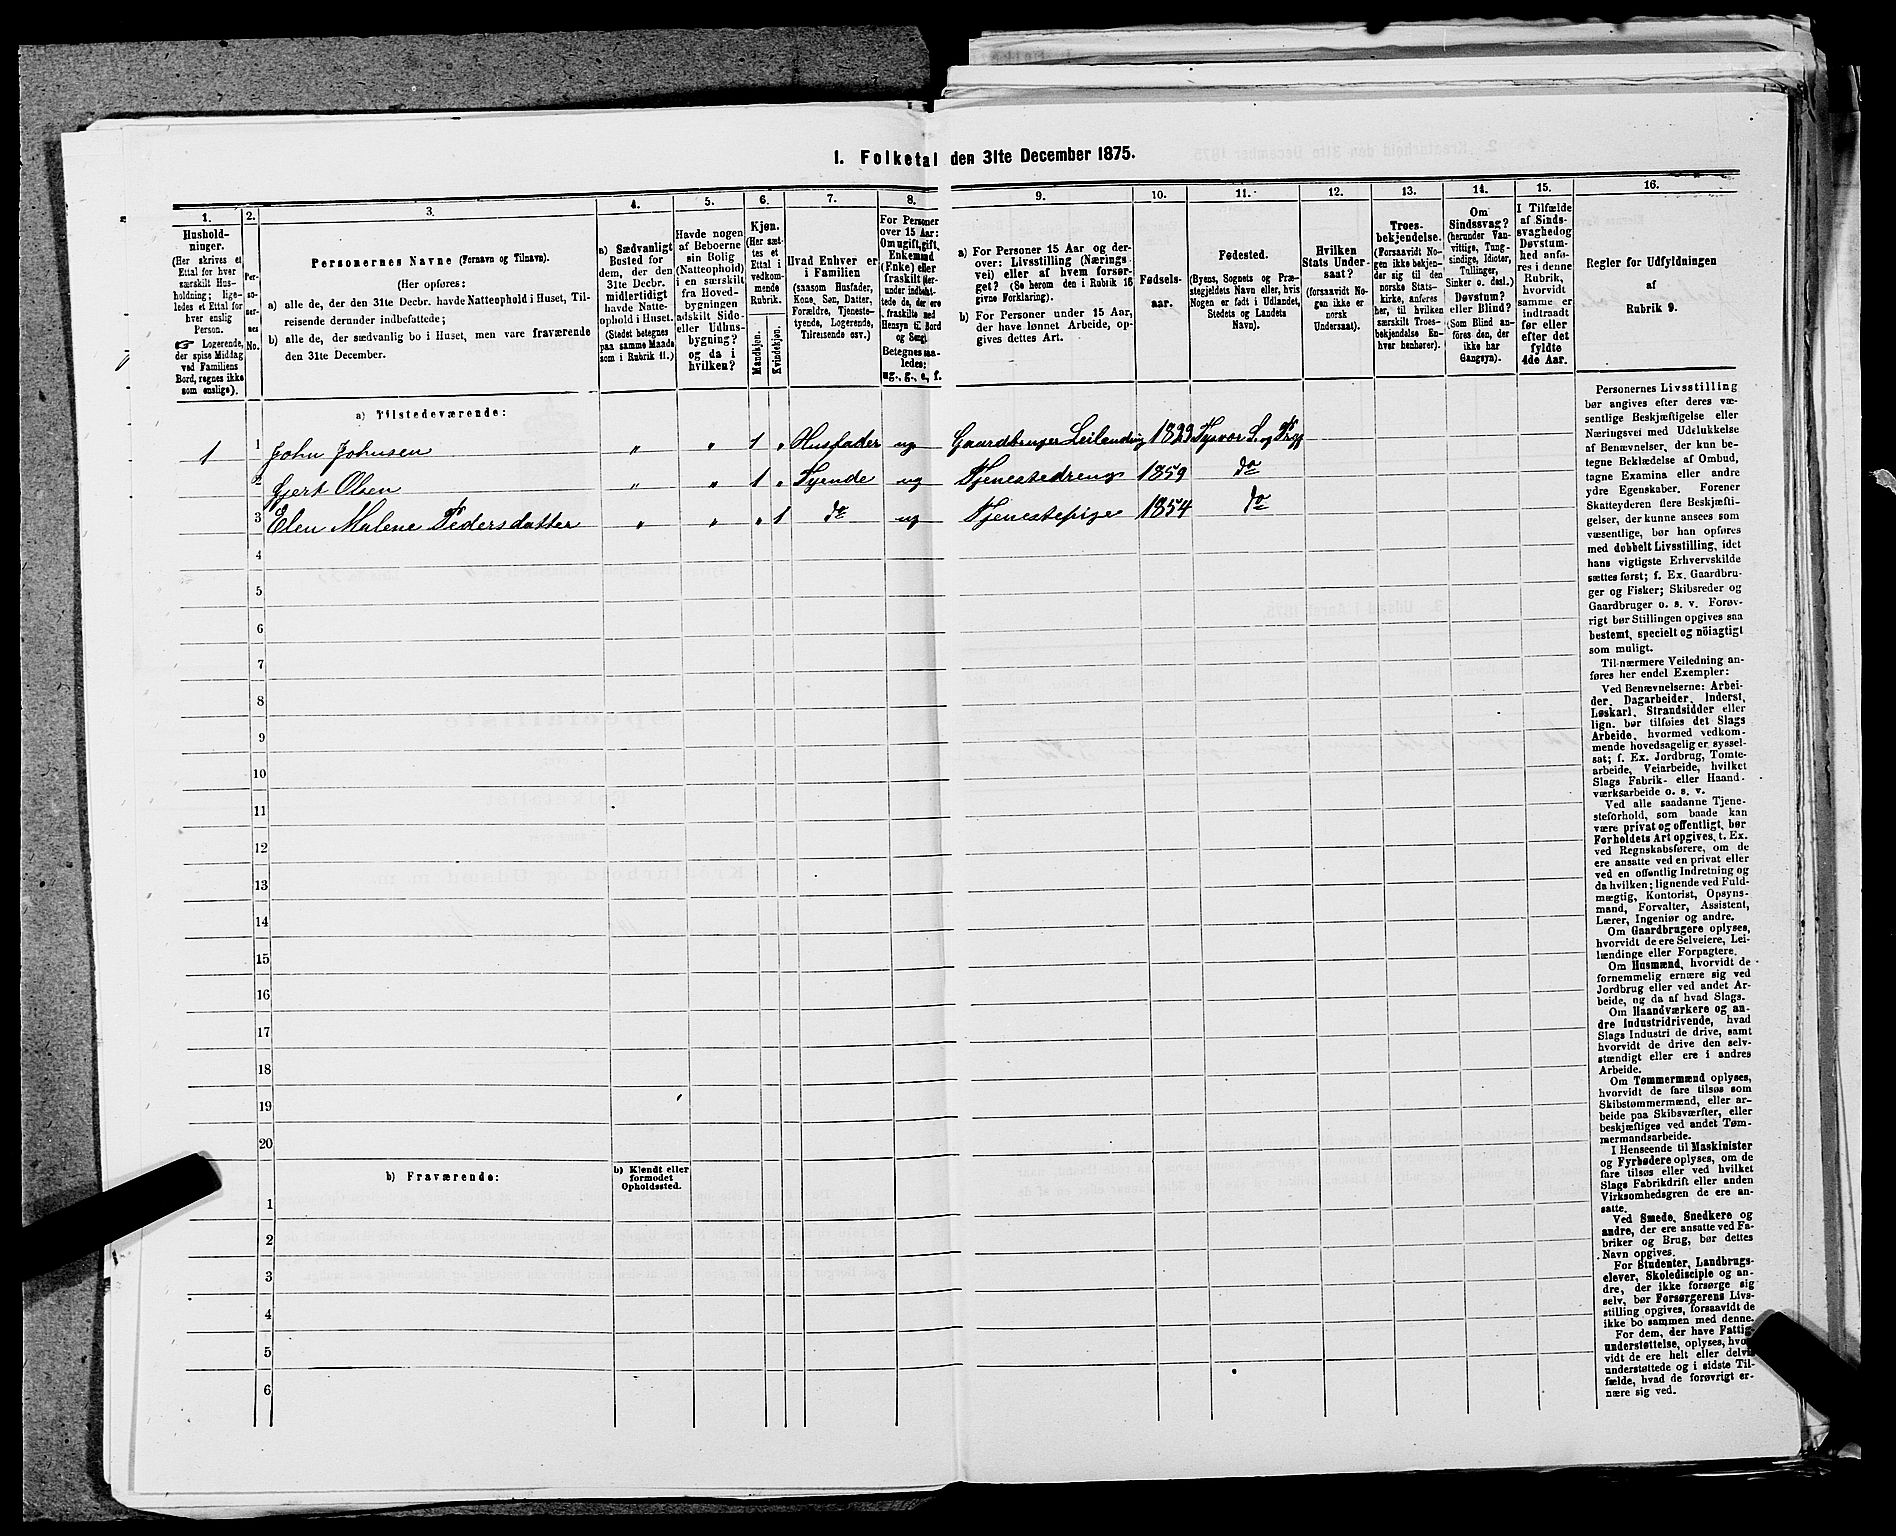 1. Folketal den 31te December 1875.
1. 2. 3. 4. 5. 6. 7. 8. 9. 10. 11. 12. 13. 14. 15. 16.
Hushold-
ninger.
(Her skrives et
Ettal for hver
særskilt Hus-
holdning; lige-
ledes et Ettal for
hver enslig
Person.
☞ Logerende,
der spise Middag
ved Familiens
Bord, regnes ikke
som enslige).
Per-
so-
ner-
nes
No.
Personernes Navne (Fornavn og Tilnavn).
(Her opføres:
a) alle de, der den 31te Decbr. havde Natteophold i Huset, Til-
reisende derunder indbefattede;
b) alle de, der sædvanlig bo i Huset, men vare fraværende
den 31te December.
a) Sædvanligt
Bosted for
dem, der den
31te Decbr.
midlertidigt
havde Natte-
ophold i Huset.
(Stedet betegnes
paa samme Maade
som i Rubrik 11.)
Havde nogen
af Beboerne
sin Bolig
(Natteophold)
i en særskilt
fra Hoved-
bygningen
adskilt Side-
eller Udhus-
bygning?
og da i
hvilken?
Kjøn.
(Her sæt-
tes et
Ettal i
vedkom-
mende
Rubrik.
Mandkjøn.
Kvindekjøn.
Hvad Enhver er
i Familien
(saasom Husfader,
Kone, Søn, Datter,
Forældre, Tjeneste-
tyende, Logerende,
Tilreisende osv.)
For Personer
over 15 Aar:
Om ugift, gift,
Enkemand
(Enke) eller
fraskilt (her-
under indbefat-
tede de, der ere
fraskilte med
Hensyn til Bord
og Seng).
Betegnes saa-
ledes:
ug., g., e., f.
a) For Personer 15 Aar og der-
over: Livsstilling (Nærings-
vei) eller af hvem forsør-
get? (Se herom den i Rubrik 16
givne Forklaring).
b) For Personer under 15 Aar,
der have lønnet Arbeide, op-
gives dettes Art.
Fødsels-
aar.
Fødested.
(Byens, Sognets og Præ-
stegjeldets Navn eller, hvis
Nogen er født i Udlandet,
Stedets og Landets
Navn).
Hvilken
Stats Under-
saat?
(forsaavidt No-
gen ikke er
norsk
Undersaat).
Troes-
bekjendelse.
(Forsaavidt No-
gen ikke bekjen-
der sig til den
norske Stats-
kirke, anføres
her, til hvilken
særskilt Troes-
bekjendelse En-
hver henhører).
Om
Sindssvag?
(herunder Van-
vittige, Tung-
sindige, Idioter,
Tullinger,
Sinker o. desl.)
Døvstum?
eller Blind?
(Som Blind an-
føres den, der
ikke har
Gangsyn).
I Tilfælde
af Sinds-
svaghed og
Døvstum-
hed anfø-
res i denne
Rubrik,
hvorvidt
samme er
indtraadt
før eller
efter det
fyldte
4de Aar.
Regler for Udfyldningen
af
Rubrik 9.
a) Tilstedeværende:
1 1 John Johnsen " " 1 " Husfader ug Gaardbruger Leilending 1823 Tysvær S. og Præg
2 Gjert Olsen " " 1 " Tyende ug Tjenestedreng 1859 do
3 Elen Malene Pedersdatter " " " 1 do ug Tjenestepige 1854 do
4
5
6
7
8
9
10
11
12
13
14
15
16
17
18
19
20
b) Fraværende: b) Kjendt eller
formodet
Opholdssted.
1
2
3
4
5
6
Personernes Livsstilling
bør angives efter deres væ-
sentlige Beskjæftigelse eller
Næringsvei med Udelukkelse
af Benævnelser, der kun be-
tegne Beklædelse af Ombud,
tagne Examina eller andre
ydre Egenskaber. Forener
Skatteyderen flere Beskjæfti-
gelser, der kunne ansees som
væsentlige, bør han opføres
med dobbelt Livsstilling, idet
hans vigtigste Erhvervskilde
sættes først; f. Ex. Gaardbru-
ger og Fisker; Skibsreder og
Gaardbruger o. s. v. Forøv-
rigt bør Stillingen opgives saa
bestemt, specielt og nöiagtigt
som muligt.
Til nærmere Veiledning an-
føres her endel Exempler:
Ved Benævnelserne: Arbei-
der, Dagarbeider, Inderst,
Løskarl, Strandsidder eller
lign. bør tilføies det Slags
Arbeide, hvormed vedkom-
mende hovedsagelig er syssel-
sat; f. Ex. Jordbrug, Tomte-
arbeide, Veiarbeide, hvilket
Slags Fabrik- eller Haand-
værksarbeide o. s. v.
Ved alle saadanne Tjene-
steforhold, som baade kan
være privat og offentligt, bør
Forholdets Art opgives, t. Ex.
ved Regnskabsførere, om de
ere ansatte ved en privat eller
ved en offentlig Indretning og
da hvilken; lignende ved Fuld-
mægtig, Kontorist, Opsyns-
mand, Forvalter, Assistent,
Lærer, Ingeniør og andre.
Om Gaardbrugere oplyses,
hvorvidt de ere Selveiere, Lei-
lændinge eller Forpagtere.
Om Husmænd, hvorvidt de
fornemmelig ernære sig ved
Jordbrug eller ved andet Ar-
beide, og da af hvad Slags.
Om Haandværkere og an-
dre Industridrivende, hvad
Slags Industri de drive, samt
hvorvidt de drive den selv-
stændigt eller ere i andres
Arbeide.
Om Tømmermænd oplyses,
hvorvidt de fare tilsøs som
Skibstømmermænd, eller ar-
beide paa Skibsværfter, eller
beskjæftiges ved andet Tøm-
mermandsarbeide.
I Henseende til Maskinister
og Fyrbødere oplyses, om de
fare tilsøs eller ved hvilket
Slags Fabrikdrift eller anden
Virksomhedsgren de ere an-
satte.
Ved Smede, Snedkere og
andre, der ere ansatte ved Fa-
briker og Brug, bør dettes
Navn opgives.
For Studenter, Landbrugs-
elever, Skoledisciple og an-
dre, der ikke forsørge sig
selv, bør Forsørgerens Livs-
stilling opgives, forsaavidt de
ikke bo sammen med denne.
For dem, der have Fattig-
understøttelse, oplyses, hvor-
vidt de ere helt eller delvis
understøttede og i sidste Til-
fælde, hvad de forøvrigt er-
nære sig ved.